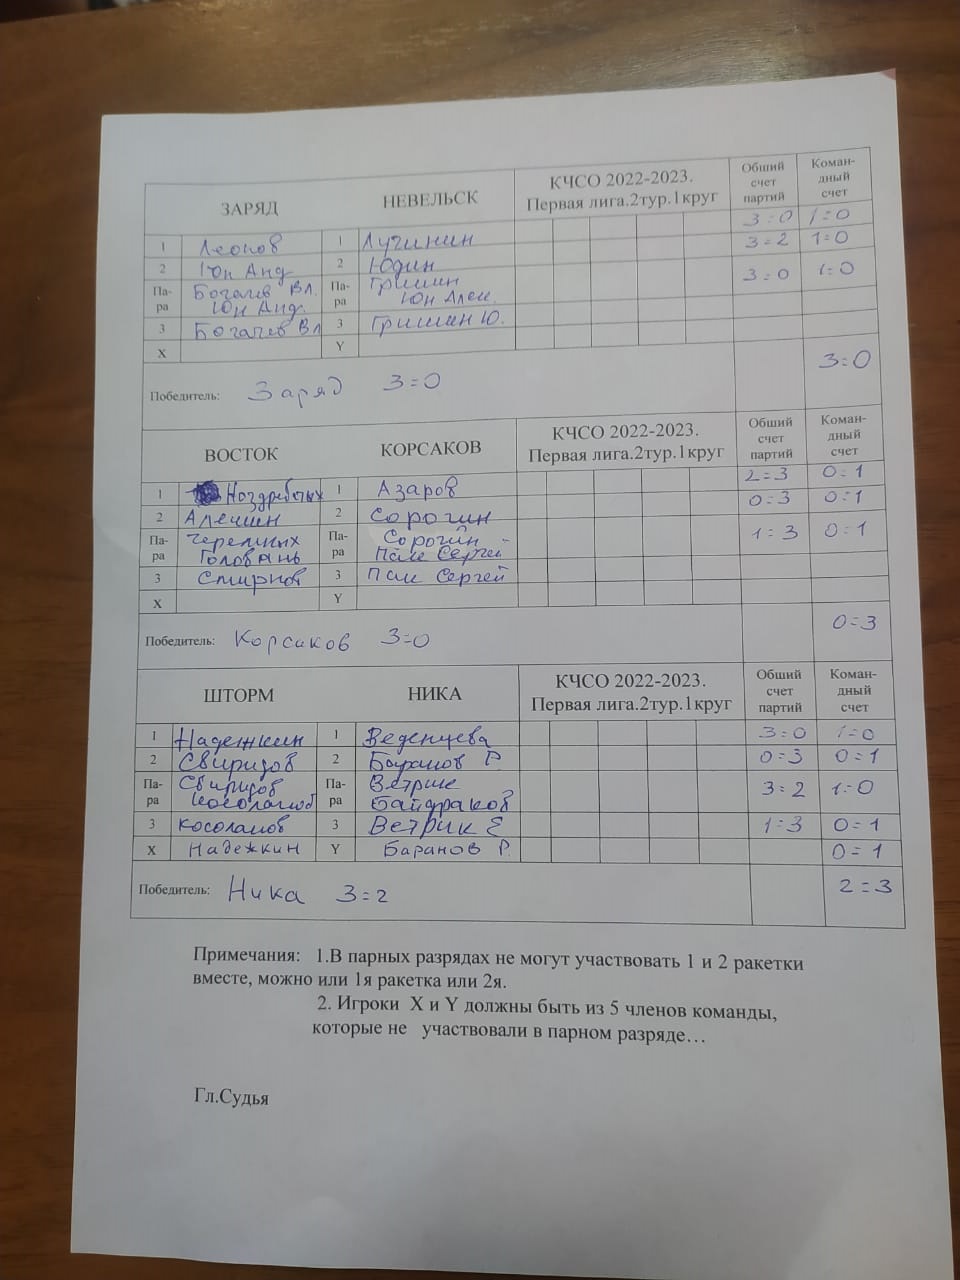 ЗАРЯД НЕВЕЛЬСК КЧСО 2022-2023. Первая лига.2тур.1круг Общий счет партий Коман-дный счет
3=0 1=0
1 Леонов 1 Лучинин 3=2 1=0
2 Юн Анд 2 Юдин
Па-ра Богачев Вл. Юн Анд. Па-ра Гришин Юн Алек. 3=0 1=0
3 Богачев Вл 3 Гришин Ю.
X Y
Победитель: Заряд 3=0 3=0
ВОСТОК КОРСАКОВ КЧСО 2022-2023. Первая лига.2тур.1круг Общий счет партий Коман-дный счет
2=3 0=1
1 Ноздрватых 1 Азаров 0=3 0=1
2 Алешин 2 Сорогин
Па-ра Черемных Головань Па-ра Сорогин Пак Сергей 1=3 0=1
3 Смирнов 3 Пак Сергей
X Y
Победитель: Корсаков 3=0 0=3
ШТОРМ НИКА КЧСО 2022-2023. Первая лига.2тур.1круг Общий счет партий Коман-дный счет
1 Надежкин 1 Веденцева 3=0 1=0
2 Свиридов 2 Баранов Р. 0=3 0=1
Па-ра Свиридов Косолапов Па-ра Ветрик Байдраков 3=2 1=0
3 Косолапов 3 Ветрик Е 1=3 0=1
X Надежкин Y Баранов Р. 0=1
Победитель: Ника 3=2 2=3
Примечания: 1.В парных разрядах не могут участвовать 1 и 2 ракетки
вместе, можно или 1я ракетка или 2я.
2. Игроки X и Y должны быть из 5 членов команды,
которые не участвовали в парном разряде…
Гл.Судья